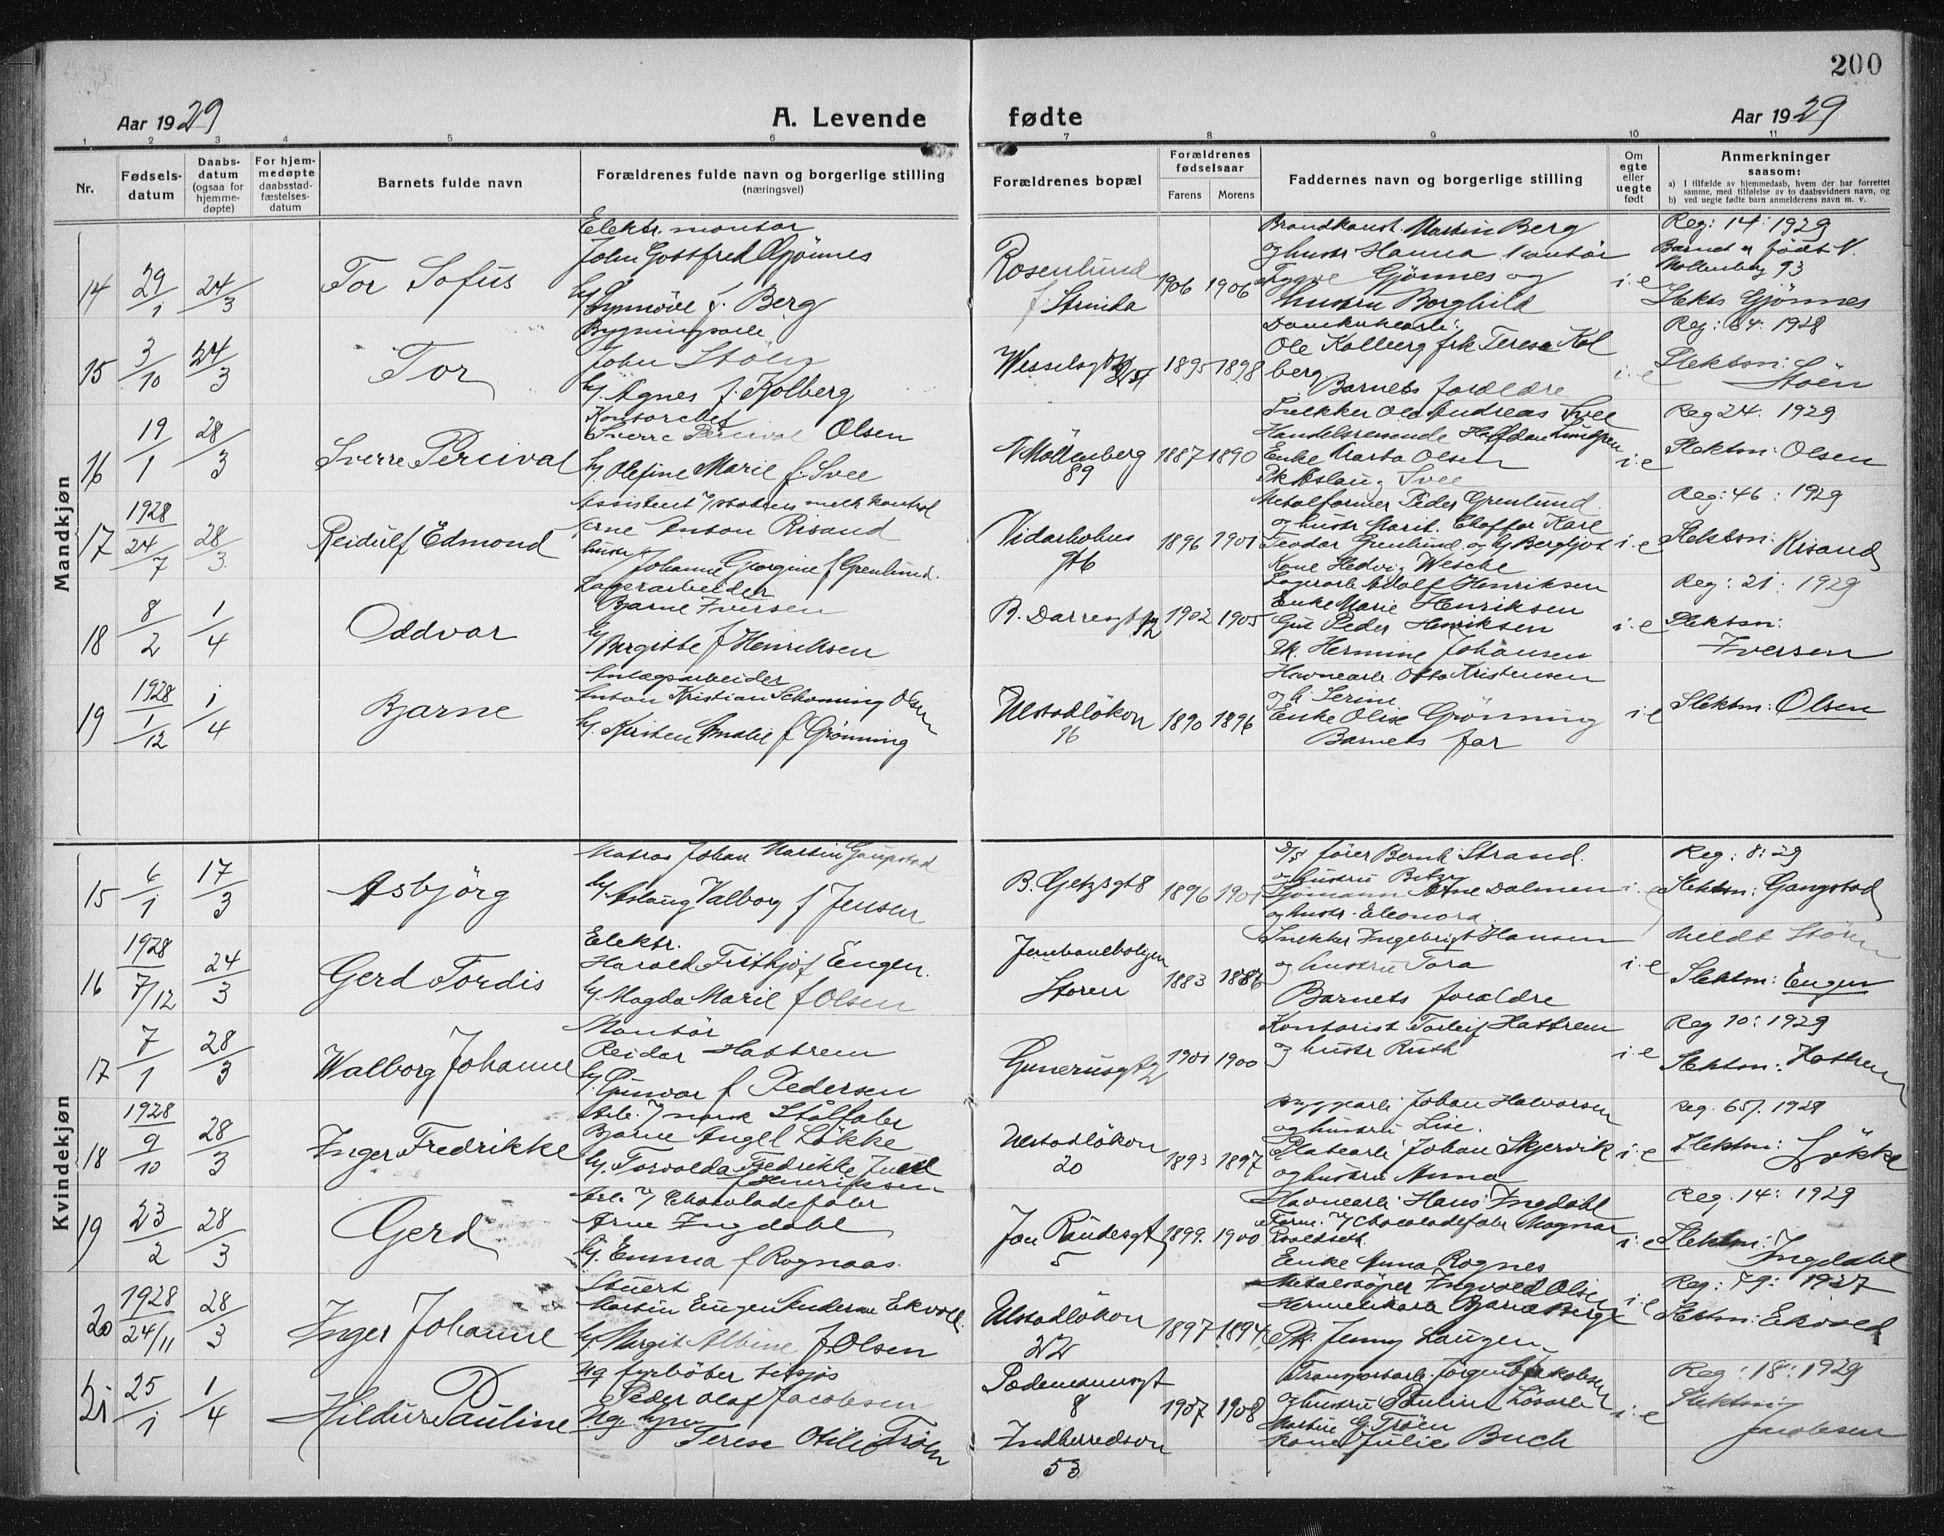 200
Aar 1929
A. Levende
fødte
Aar 1929
1 2 3 4 5 6 7 8 9 10 11
Nr.
Fødsels-
datum
Daabs-
datum
(ogsaa for
hjemme-
døpte)
For hjem-
medøpte
daabsstad-
fæstelses-
datum
Barnets fulde navn
Forældrenes fulde navn og borgerlige stilling
(næringsvei)
Forældrenes bopæl
Forældrenes
fødselsaar
Farens Morens
Faddernes navn og borgerlige stilling
Om
egte
eller
uegte
født
Anmerkninger
saasom:
a) I tilfælde av hjemmedaab, hvem der har forrettet
samme, med tilføielse av to daabsvidners navn, og
b) ved uegte fødte barn anmelderens navn m. v.
Mandkjøn
14 29/1 24/3 Tor Sofus
Elektr. montør
John Gottfred Gjönnes
f. Berg
Rosenlund
f Strinda
1906 1906
Brandkonst. Martin Berg
og hustr Hanna kontör
Trygve Gjönnes og
hustru Borghild
i. e
Reg: 14: 1929
Barnet er født N.
Möllenberg 93
Slekts Gjönnes
15 3/10 24/3 Tor
Bygningsarb.
John Stöen
h. Agnes f. Kolberg
Wesselsgt
1895 1898
Ole Kolberg frk Terese Kol
berg.
Barnets foreldre
i. e
Reg: 84. 1928
Slektsn:
Stöen
16 19/1 28/3 Sverre Percival
Kontorchef
Sverre Percival Olsen
h. Olefine Marie f. Svee
N Möllenberg
89
1887 1890
Snekker Ole Andreas Svee
Handelsreisende Halfdan Lundgren
Enke Marta Olsen
Frk Aslaug Svee
i. e
Reg 24. 1929
Slektsn: Olsen
17 1928 24/7 28/3 Reidulf Edmond
Assistent v/ statens melk kontrol
Arne Anton Risand
hustr
Johanne Georgine f Grenlund.
1896 1901
Metalformer Peder Grenlund.
og hustr Marit. Chaffør Karl
Teodor Grenlund og h. Bergljot
Kone Hedvig Wesche
i. e
Reg: 46: 1929
Slektsn: Risand
18 8/2 1/4 Oddvar
Lagerarbeider
Bjarne Iversen
h. Bergitte f Henriksen
1902 1905
Lagerarb Adolf Henriksen
Enke Marie Henriksen
Gut Peder Henriksen
Frk. Hermine Johansen
i. e
Reg: 21. 1929
Slektsn:
Iversen
19 1928 1/12 1/4 Bjarne
Anlægsarbeider
Anton Kristian Schonning Olsen
h. Kirsten Amalie f Grönning
Ulstadlökon
16
1890 1896
Havnearb. Otto Kristensen
og h. Serine
Enke Olise Grönning
Barnets far
i. e
Slektsn: Olsen
Kvindekjøn
15 6/1 17/3 Asbjörg
Matros Johan Martin Gangstad
h. Aslaug Valborg f Jensen
B. Getzsgt 8
1896 1901
D/S förer Bernh Strand.
og hustru Betzy
Sjömann Arne Dalmen
og hustr. Eleonora
i. e
Reg: 8: 29
Slektsn: Gangstad
16 1928 7/12 24/3 Gerd Tordis
Elektr.
Harald Frithjof Engen.
h. Magda Marie f Olsen
Jernbaneboligen
Storen
1883 1886
Snekker Ingebrigt Hansen
og hustru Tora
Barnets foreldre
i. e
Meldt Stören
Slektsn: Engen
17 7/1 28/3 Walborg Johanne
Montör
Reidar Hattrem
h. Gunvor f Pedersen
1901 1900
Kontorist Torleif Hattrem
og hustr Ruth
i. e
Reg 10: 1929
Slektsn: Hattrem
18 1928 9/10 28/3 Inger Fredrikke
Arb. v/ norsk Stålfabr
Bjarne Angel Lökke
h. Torvalda Fredrikke Juell
f Henriksen
Ulstadlökon
20
1893 1897
Byggearb Johan Halvorsen
og hustru Lise.
Platearb Johan Skjervik
og hustru Anna
i. e
Reg. 65/. 1928
Slektsn:
Lökke
19 23/2 28/3 Gerd
Arb. v/ Chocoladefabr
Arne Ingdahl
h. Emma f Rognaas.
Jon Raudesgt
5
1899. 1900
Havnearb Hans Ingdahl
Form. v/ Chocoladefabr Magnar
Roaldseth
Enke Anna Rognes
i. e
Reg. 14: 1929
Slektsn:
Ingdahl
20 1928 24/11 28/3 Inger Johanne
Stuert
Martin Eugen Andersen Ekvold.
h. Margit Albine f. Olsen
Ulstadlökon
22
1897 1894
Metalstöper Ingvald Olsen
Frk. Jenny Laugen
i. e
Reg: 79: 1927
Slektsn: Ekvold
21 25/1 1/4 Hildur Pauline
Ug fyrböter tilsjös
Peder Olaf Jacobsen
Ug.
Terese Otilie Tröen
8
Indherredsvn
53
1907 1908
Transportarb Jörgen Jakobsen
og hustru Pauline Lösarb
Martin G Tröen
kone Julie Buch
i. e
Reg: 18: 1929
Slektsn:
Jacobsen